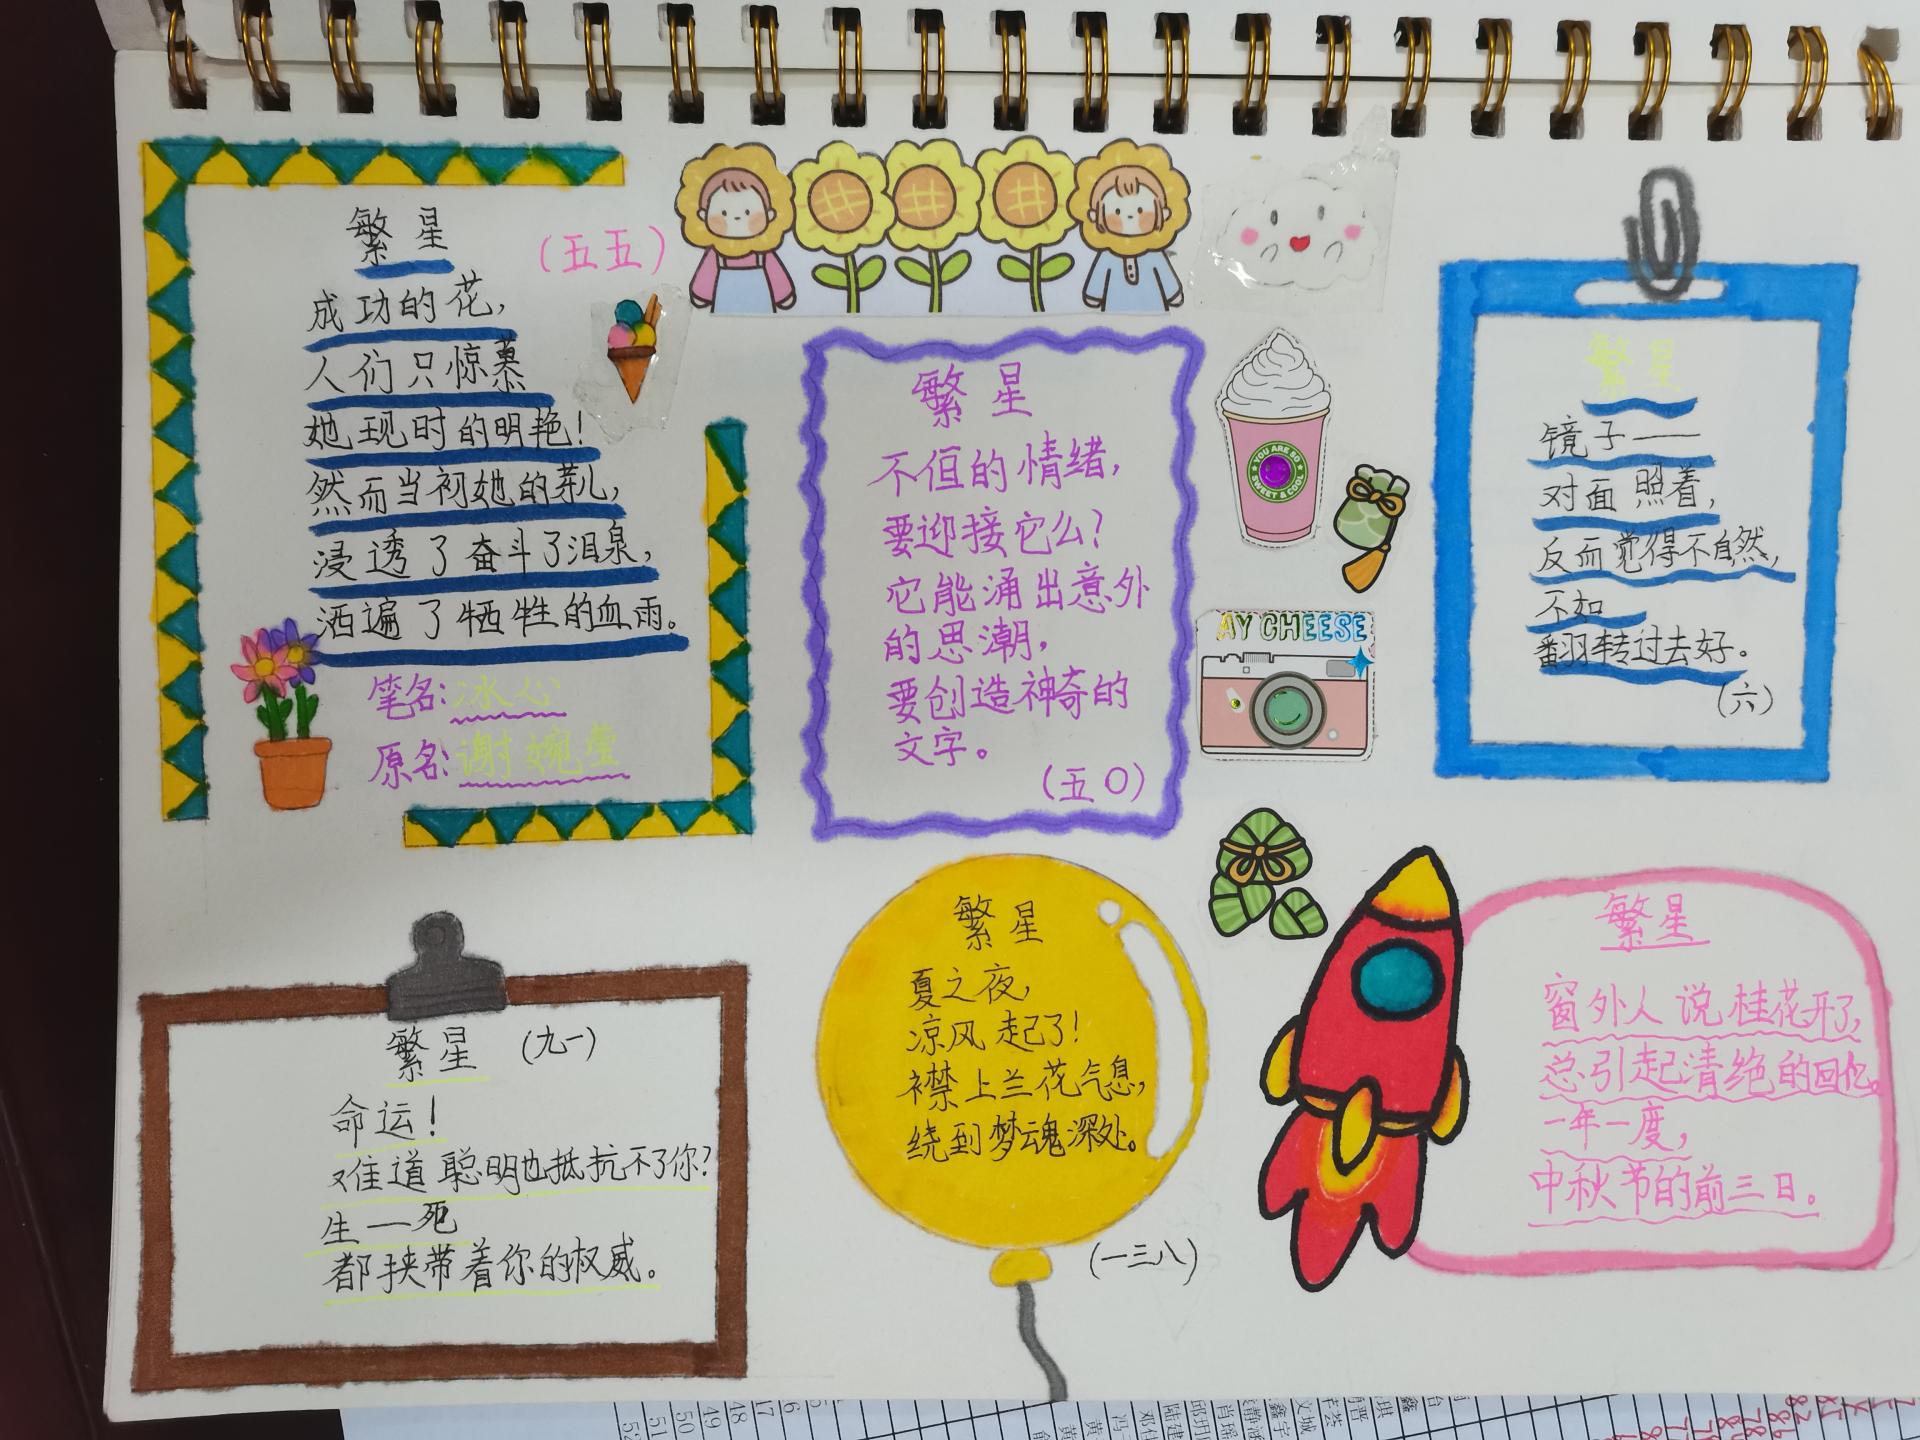 繁星
（五五）
成功的花，
人们只惊慕
她现时的明艳！
然而当初她的芽儿，
浸透了奋斗了泪泉，
洒遍了牺牲的血雨。
笔名：冰心
原名：谢婉莹
繁星
不但的情绪，
要迎接它么？
它能涌出意外
的思潮，
要创造神奇的
文字。
（五〇）
YOU ARE SO
SWEET & COOL
AY CHEESE
繁星
镜子——
对面照着，
反而觉得不自然，
不如
翻转过去好。
（六）
繁星（九一）
命运！
难道聪明也抵抗不了你？
生—死
都挟带着你的权威。
繁星
夏之夜，
凉风起了！
襟上兰花气息，
绕到梦魂深处。
（一三八）
繁星
窗外人说桂花开了，
总引起清绝的回忆。
一年一度，
中秋节的前三日。
51
50
49
48